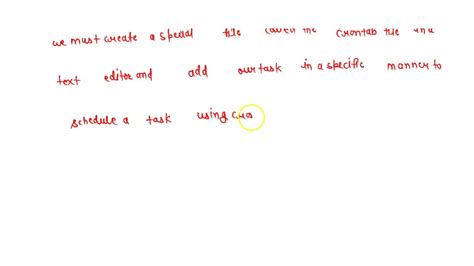 we must create a special file called the crontab file in a
text editor and add our task in a specific manner to
schedule a task using cro